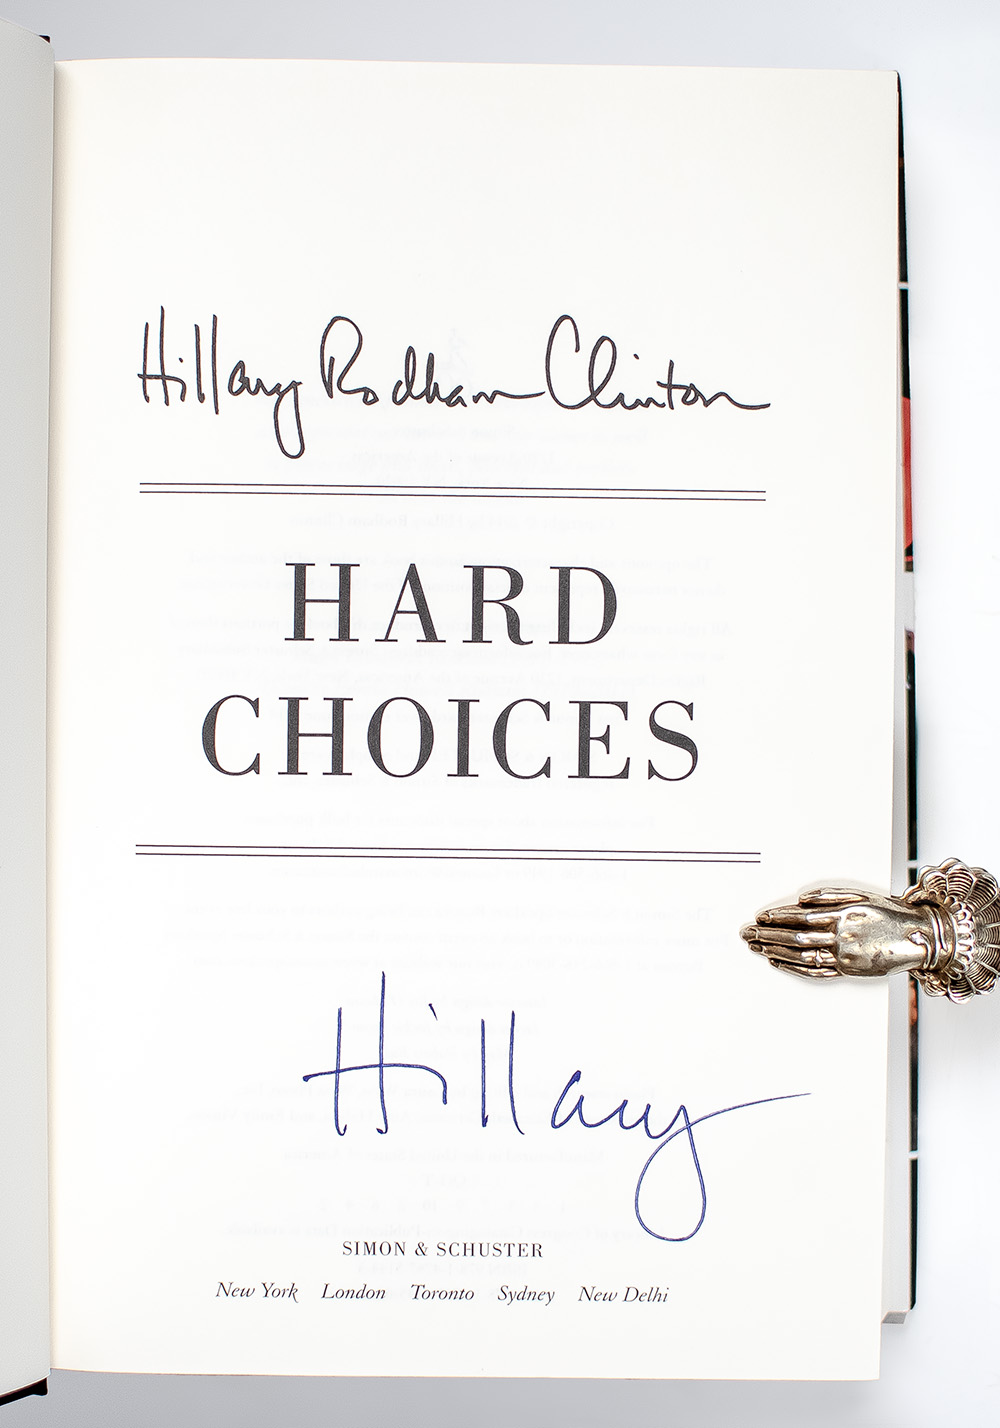 Hillary Rodham Clinton
HARD
CHOICES
Hillary
SIMON & SCHUSTER
New York London Toronto Sydney New Delhi